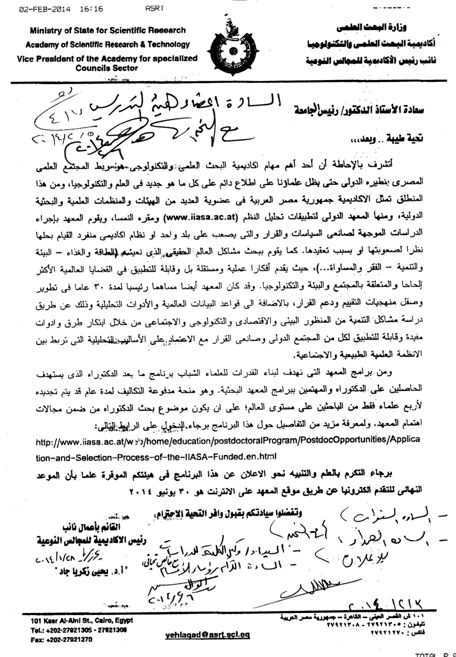 02-FEB-2014 16:16 ASRT
Ministry of State for Scientific Research
Academy of Scientific Research & Technology
Vice President of the Academy for specialized
Councils Sector
وزارة البحث العلمى
أكاديمية البحث العلمى والتكنولوجيا
نائب رئيس الأكاديمية للمجالس النوعية
سعادة الأستاذ الدكتور/ رئيس الجامعة
السادة أعضاء هيئة التدريس
تحية طيبة .. وبعد،،،
أتشرف بالإحاطة أن أحد أهم مهام اكاديمية البحث العلمى والتكنولوجى هو ربط المجتمع العلمى
المصرى بنظيره الدولى حتى يظل علماؤنا على اطلاع دائم على كل ما هو جديد فى العلم والتكنولوجيا، ومن هذا
المنطلق تمثل الاكاديمية جمهورية مصر العربية فى عضوية العديد من الهيئات والمنظمات العلمية والبحثية
الدولية، ومنها المعهد الدولى لتطبيقات تحليل النظم (www.iiasa.ac.at) ومقره النمسا، ويقوم المعهد بإجراء
الدراسات الموجهة لصانعى السياسات والقرار والتى يصعب على بلد واحد او نظام اكاديمى منفرد القيام بحلها
نظرا لصعوبتها او بسبب تعقيدها. كما يقوم ببحث مشاكل العالم الحقيقى الذى نعيشه (الطاقة والغذاء – البيئة
والتنمية – الفقر والمساواة...)، حيث يقدم أفكارا عملية ومستقلة بل وقابلة للتطبيق فى القضايا العالمية الأكثر
إلحاحا والمتعلقة بالمجتمع والبيئة والتكنولوجيا. وقد كان المعهد أيضا مساهما رئيسيا لمدة ٣٠ عاما فى تطوير
وصقل منهجيات التقييم ودعم القرار، بالاضافة الى قواعد البيانات العالمية والأدوات التحليلية وذلك عن طريق
دراسة مشاكل التنمية من المنظور البيئى والاقتصادى والتكنولوجى والاجتماعى من خلال ابتكار طرق وادوات
مفيدة وقابلة للتطبيق لكل من المجتمع الدولى وصانعى القرار مع الاعتماد على الأساليب التحليلية التى تربط بين
الانظمة العلمية الطبيعية والاجتماعية.
ومن برامج المعهد التى تهدف لبناء القدرات للعلماء الشباب برنامج ما بعد الدكتوراه الذى يستهدف
الحاصلين على الدكتوراه والمهتمين ببرامج المعهد البحثية. وهو منحة مدفوعة التكاليف لمدة عام قد يتم تجديده
لأربع علماء فقط من الباحثين على مستوى العالم؛ على ان يكون موضوع بحث الدكتوراه من ضمن مجالات
اهتمام المعهد. ولمعرفة مزيد من التفاصيل حول هذا البرنامج برجاء الدخول على الرابط التالى:
http://www.iiasa.ac.at/web/home/education/postdoctoralProgram/PostdocOpportunities/Applica
tion-and-Selection-Process-of-the-IIASA-Funded.en.html
برجاء التكرم بالعلم والتنبيه نحو الاعلان عن هذا البرنامج فى هيئتكم الموقرة علما بأن الموعد
النهائى للتقدم الكترونيا عن طريق موقع المعهد على الانترنت هو ٣٠ يونيو ٢٠١٤
وتفضلوا سيادتكم بقبول وافر التحية والاحترام،
القائم بأعمال نائب
رئيس الاكاديمية للمجالس النوعية
أ.د. يحيى زكريا جاد
101 Kasr Al-Aini St., Cairo, Egypt
Tel.: +202-27921305 - 27921308
Fax: +202-27921270
yehlaqad@asrt.sci.eg
١٠١ ش القصر العينى – القاهرة – جمهورية مصر العربية
تليفون : ٢٧٩٢١٣٠٥ - ٢٧٩٢١٣٠٨
فاكس : ٢٧٩٢١٢٧٠